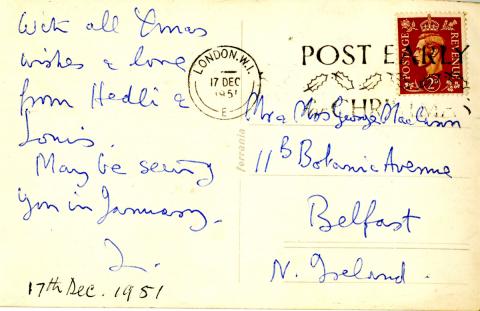 With all Xmas
wishes & love
from Hedli &
Louis.
May be seeing
you in January.
L.
17th Dec. 1951
LONDON. W.1.
17 DEC
1951
E
POST EARLY
CHRISTMAS
POSTAGE
REVENUE
2D
Ferrania
Mr & Mrs George MacCann
11B Botanic Avenue
Belfast
N. Ireland.